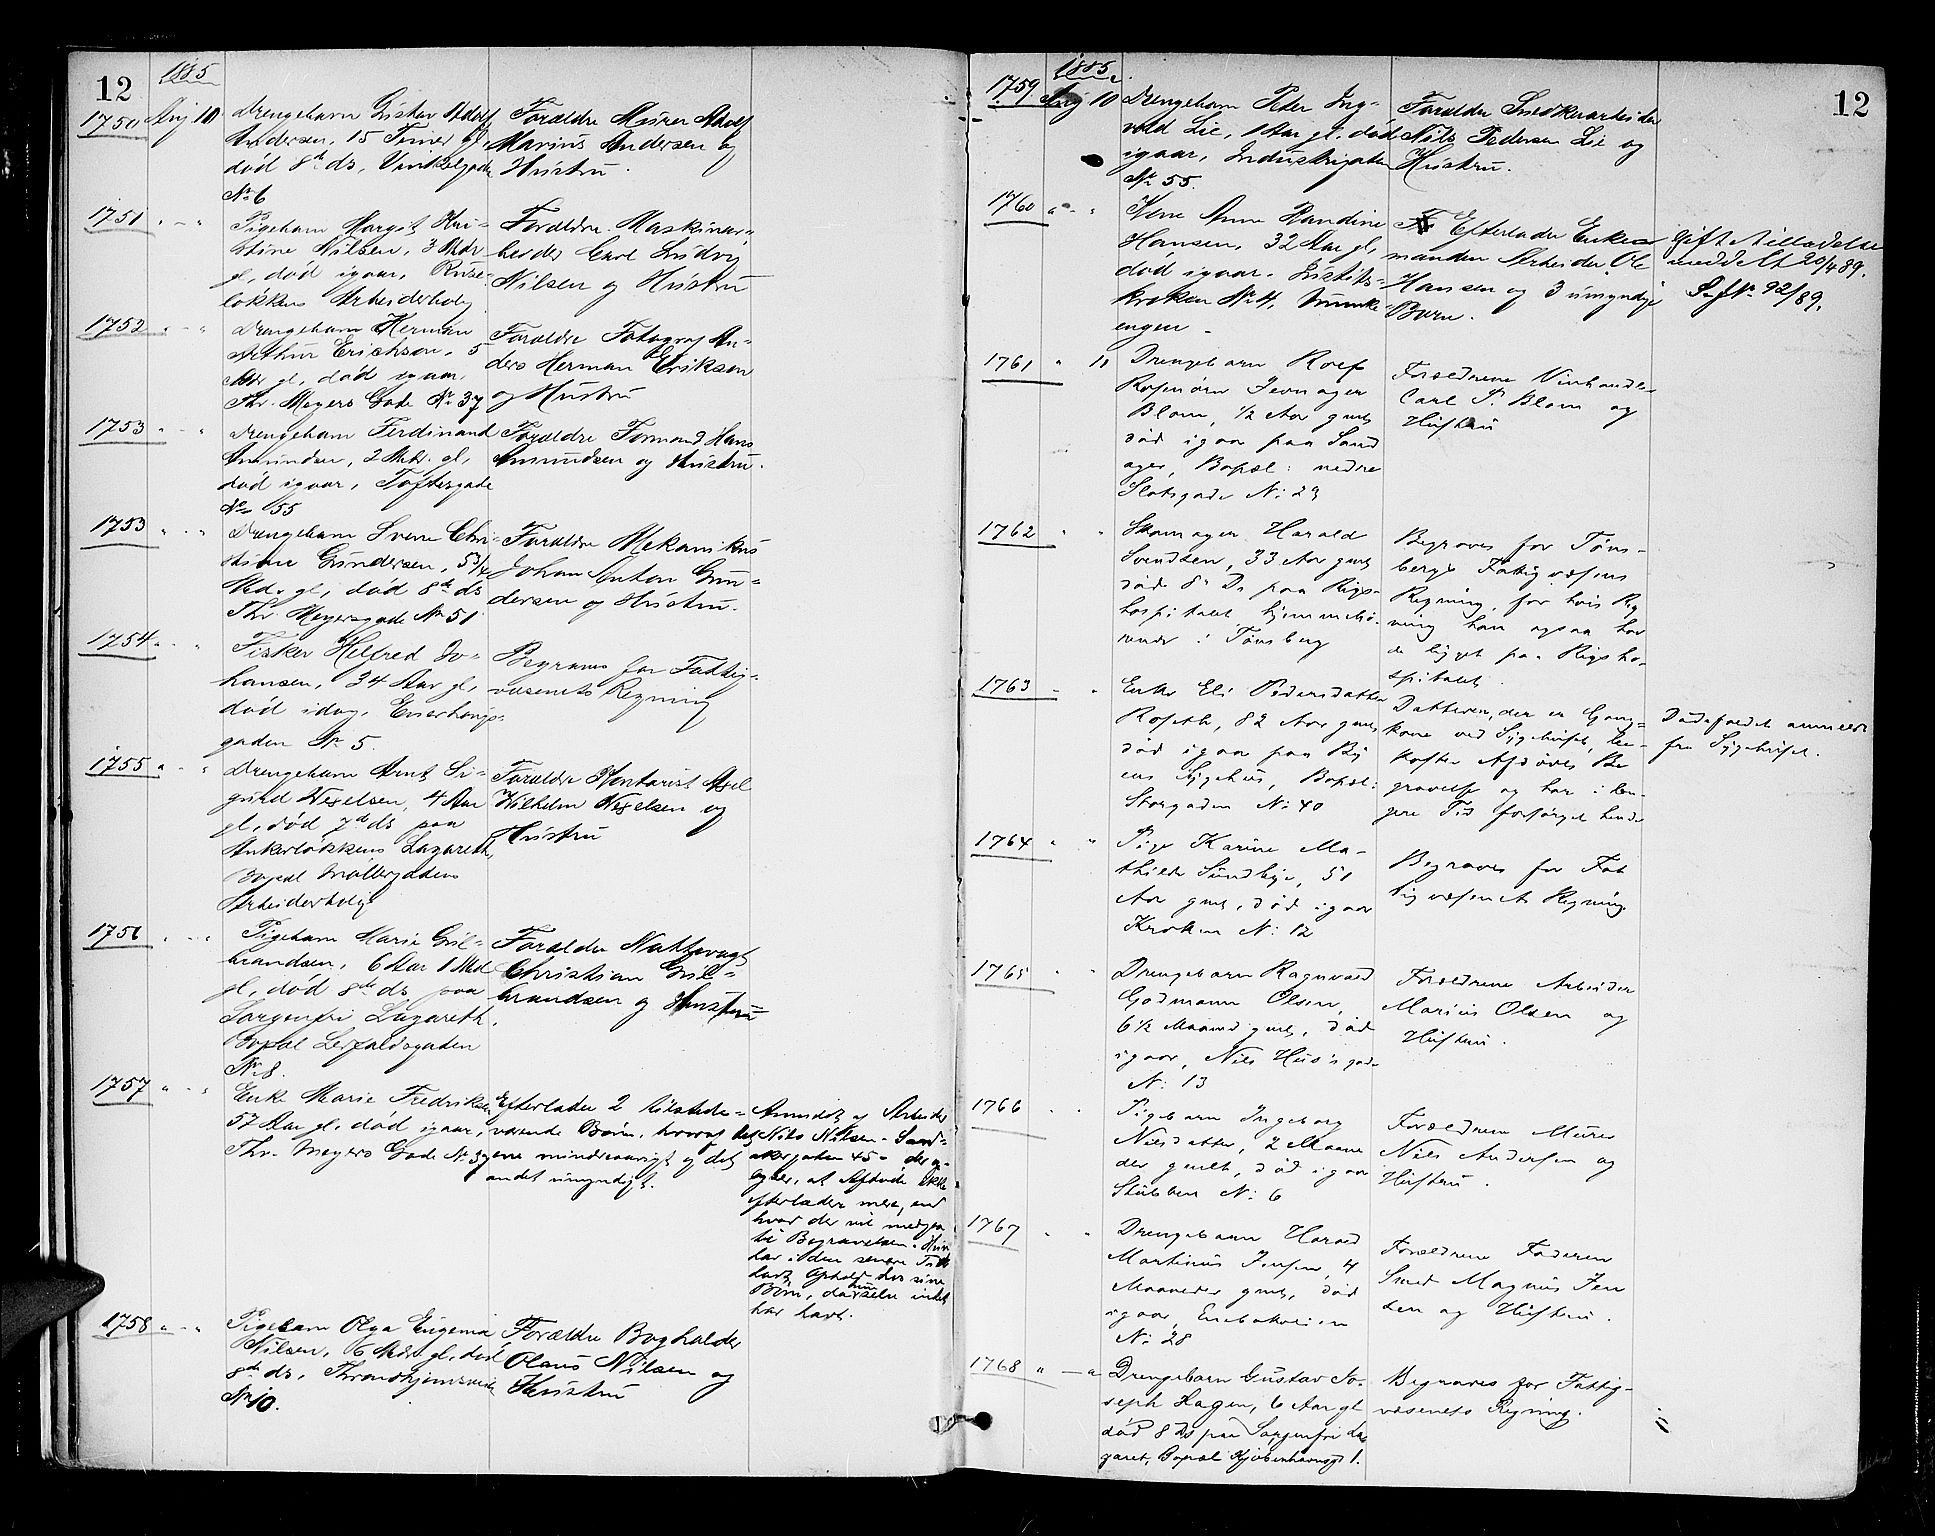 12
1885
1750 Aug 10 Drengebarn Gustav Adolf
Andersen, 15 Timer gl,
død 8de ds, Vinkelgaden
No 6
Forældre Murer Adolf
Marius Andersen og
Hustru.
1751 " - " Pigebarn Margit Kri-
stine Nilsen, 3 Mdr
gl, død igaar, Ruse-
løkken Arbeiderbolig
Forældre Maskinar-
beider Carl Ludvig
Nilsen og Hustru
1752 " - " Drengebarn Herman
Arthur Erichsen, 5
Mdr gl, død igaar,
Thv. Meyers Gade No 37
Forældre Fotograf An-
ders Herman Eriksen
og Hustru
1753 " - " Drengebarn Ferdinand
Amundsen, 2 Mdr. gl,
død igaar, Toftesgade
No 55
Forældre Formand Hans
Amundsen og Hustru.
1753 " - " Drengebarn Sverre Chri-
stian Gundersen, 5 3/4
Md. gl, død 8de ds
Thv. Meyersgade No 51
Forældre Mekanikus
Johan Anton Gun-
dersen og Hustru.
1754 " - " Fisker Helfred Jo-
hansen, 34 Aar gl,
død idag,
gaden No 5.
Begraves for Fattig-
væsenets Regning
1755 " - " Drengebarn Arnt Si-
gurd Wexelsen, 4 Aar
gl, død 7de ds paa
Ankerløkkens Lazareth,
Bopæl Møllergadens
Arbeiderbolig
Forældre Kontorist Axel
Wilhelm Wexelsen og
Hustru
1756 " - " Pigebarn Marie Gul-
brandsen, 6 Aar 1 Md
gl, død 8de ds paa
Sorgenfri Lazareth.
Bopæl Lerfaldsgaden
No 8.
Forældre Nattevagt
Christian Gul-
brandsen og Hustru
1757 " - " Enke Marie Fredriksen
57 Aar gl, død igaar,
Thv. Meyers Gade No 37
Efterlader 2 tilstede-
værende Børn, hvoraf det
ene mindreaarigt og det
andet umyndigt.
Anmeldt af Arbeider
Nils Nilsen - Sand-
akergaden 45 - der op-
giver, at Afdøde ikke
efterlader mere, end
hvad der vil medgaa
til Begravelsen. Hun
har i den senere Tid
havt Ophold hos sine
Børn, da hun selv intet
har havt.
1758 " - " Pigebarn Olga Eugenia
Nilsen, 6 Mdr gl, død
8de ds, Throndhjemsveien
No 10.
Forældre Bogholder
Olaus Nilsen og
Hustru
12
1885.
1759 Aug 10 Drengebarn Peder Ing-
vald Lie, 1 Aar gl. død
igaar, Industrigaden
No 55.
Forældre Snedkerarbeider
Nils Pedersen Lie og
Hustru.
1760 " - " Kone Anne Randine
Hansen, 32 Aar gl,
død igaar.
kroken No 4, Munke-
engen -
Efterlader Enke-
manden Arbeider Ole
Hansen og 3 umyndige
Børn.
Gift Tilladelse
meddelt 20/4 89.
No 92/89.
1761 " 11 Drengebarn Rolf
Rosenørn
Blom, 1/2 Aar gml,
død igaar paa Sand
ager, Bopæl: nedre
Slotsgade No 29
Forældrene Vinhandler
Carl P. Blom og
Hustru
1762 " " Skomager Harald
Svendsen, 33 Aar gml
død 8de Ds paa Rigs-
hospitalet hjemmehø-
rende i Tønsberg
Begraves for Tøns-
bergs Fattigvæsens
Regning, for hvis Reg
ning han ogsaa har
de ligget paa Rigsho-
spitalet.
1763 - " Enke Eli Pedersdatter
Roseth, 82 Aar gml,
død igaar paa By
ens Sygehus, Bopæl:
Storgaden No 40
Datteren, der er Gang-
kone ved Sygehuset, be-
koster Afdødes Be
gravelse og har i len-
gere Tid forsørget hende
Dødsfaldet anmeldt
fra Sygehuset.
1764 " " Pige Karine Ma-
thilde Sundbye, 51
Aar gml, død igaar
Kroken No 12
Begraves for Fat
tigvæsenets Regning
1765 " " Drengebarn Ragnvald
Godmann Olsen,
6 1/2 Maaned gml, død
igaar, Nils Hus's gade
No 13
Forældrene Arbeider
Marius Olsen og
Hustru.
1766 " " Pigebarn Ingeborg
Nilsdatter, 2 Maane
der gmlt, død igaar
Stubben No 6
Forældrene Murer
Niels Andersen og
Hustru.
1767 " " Drengebarn Harald
Martinius Jensen, 4
Maaneder gml, død
igaar, Enebakveien
No 28
Forældrene Faderen
Smed Magnus Jen
sen og Hustru.
1768 " - " Drengebarn Gustav Jo-
seph Hagen, 6 Aar gl
død 8 Ds paa Sorgenfri La
zaret, Bopæl Kjøbenhavnsgd 1.
Begraves for Fattig-
væsenets Regning.